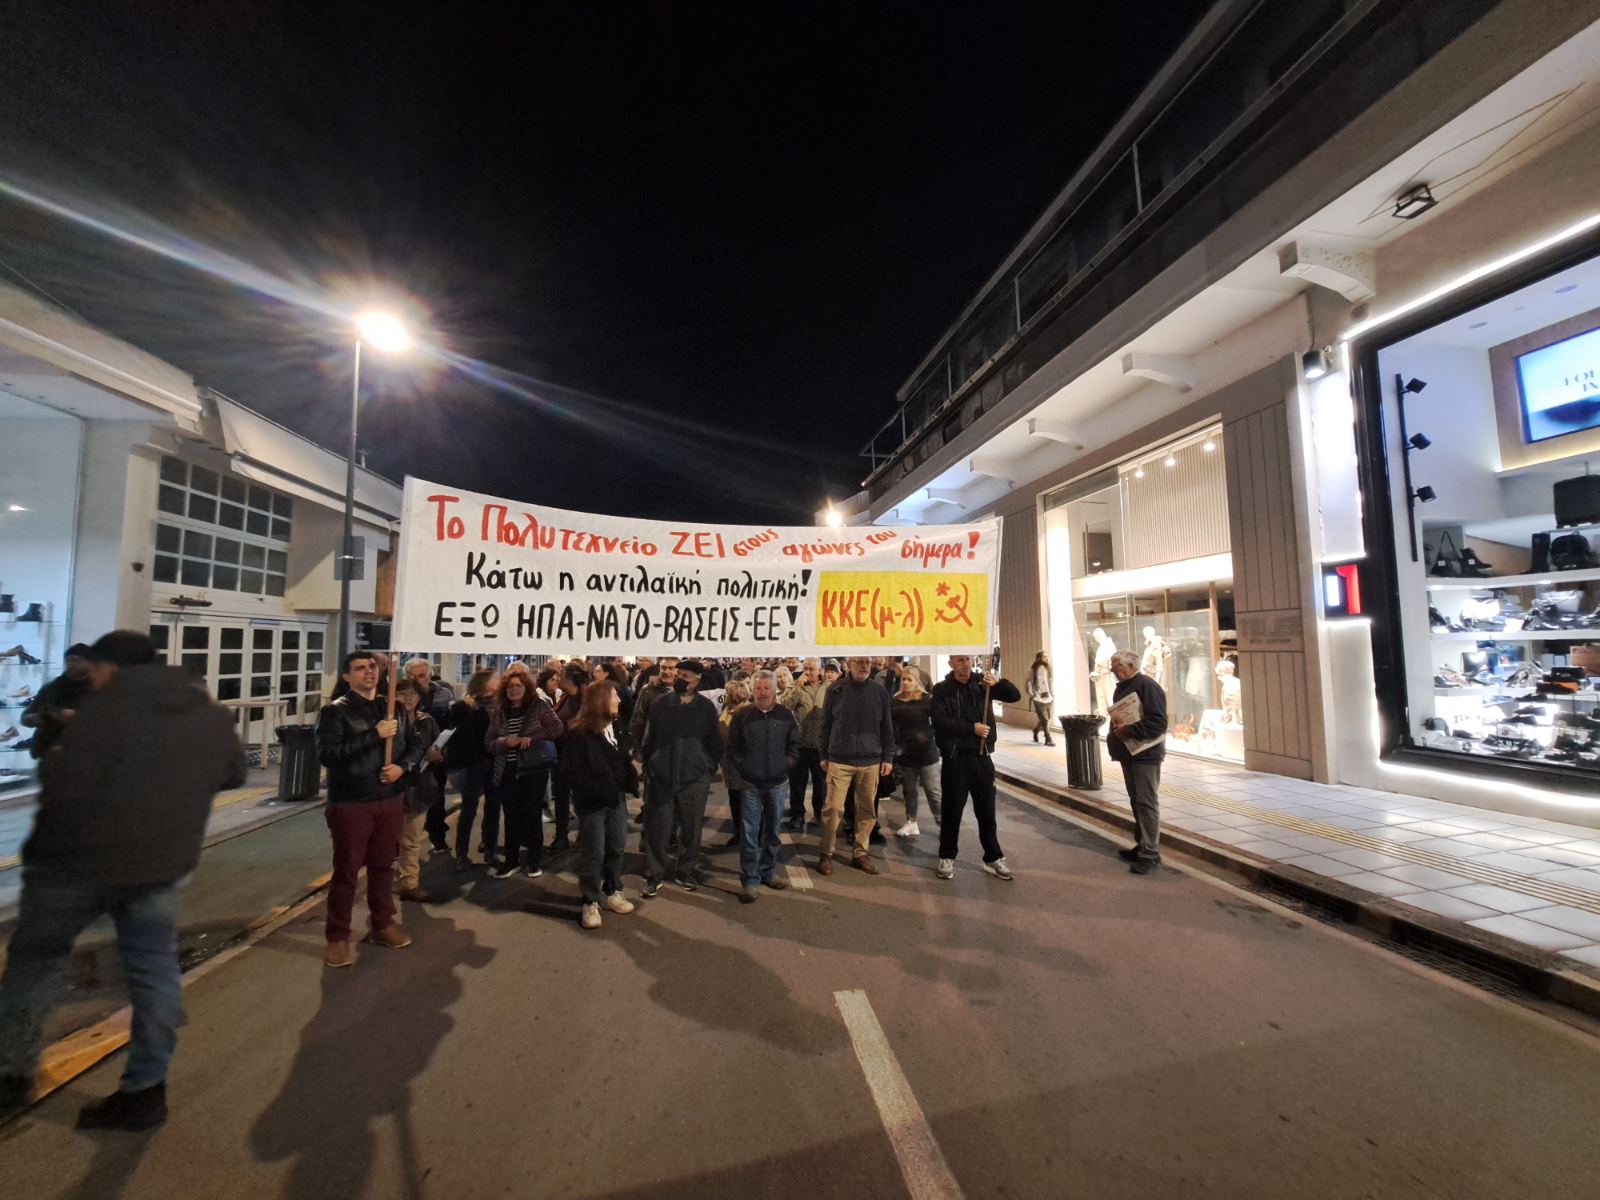 Το Πολυτεχνείο ΖΕΙ στους αγώνες του σήμερα!
Κάτω η αντιλαϊκή πολιτική!
ΕΞΩ ΗΠΑ-ΝΑΤΟ-ΒΑΣΕΙΣ-ΕΕ!
ΚΚΕ(μ-λ)